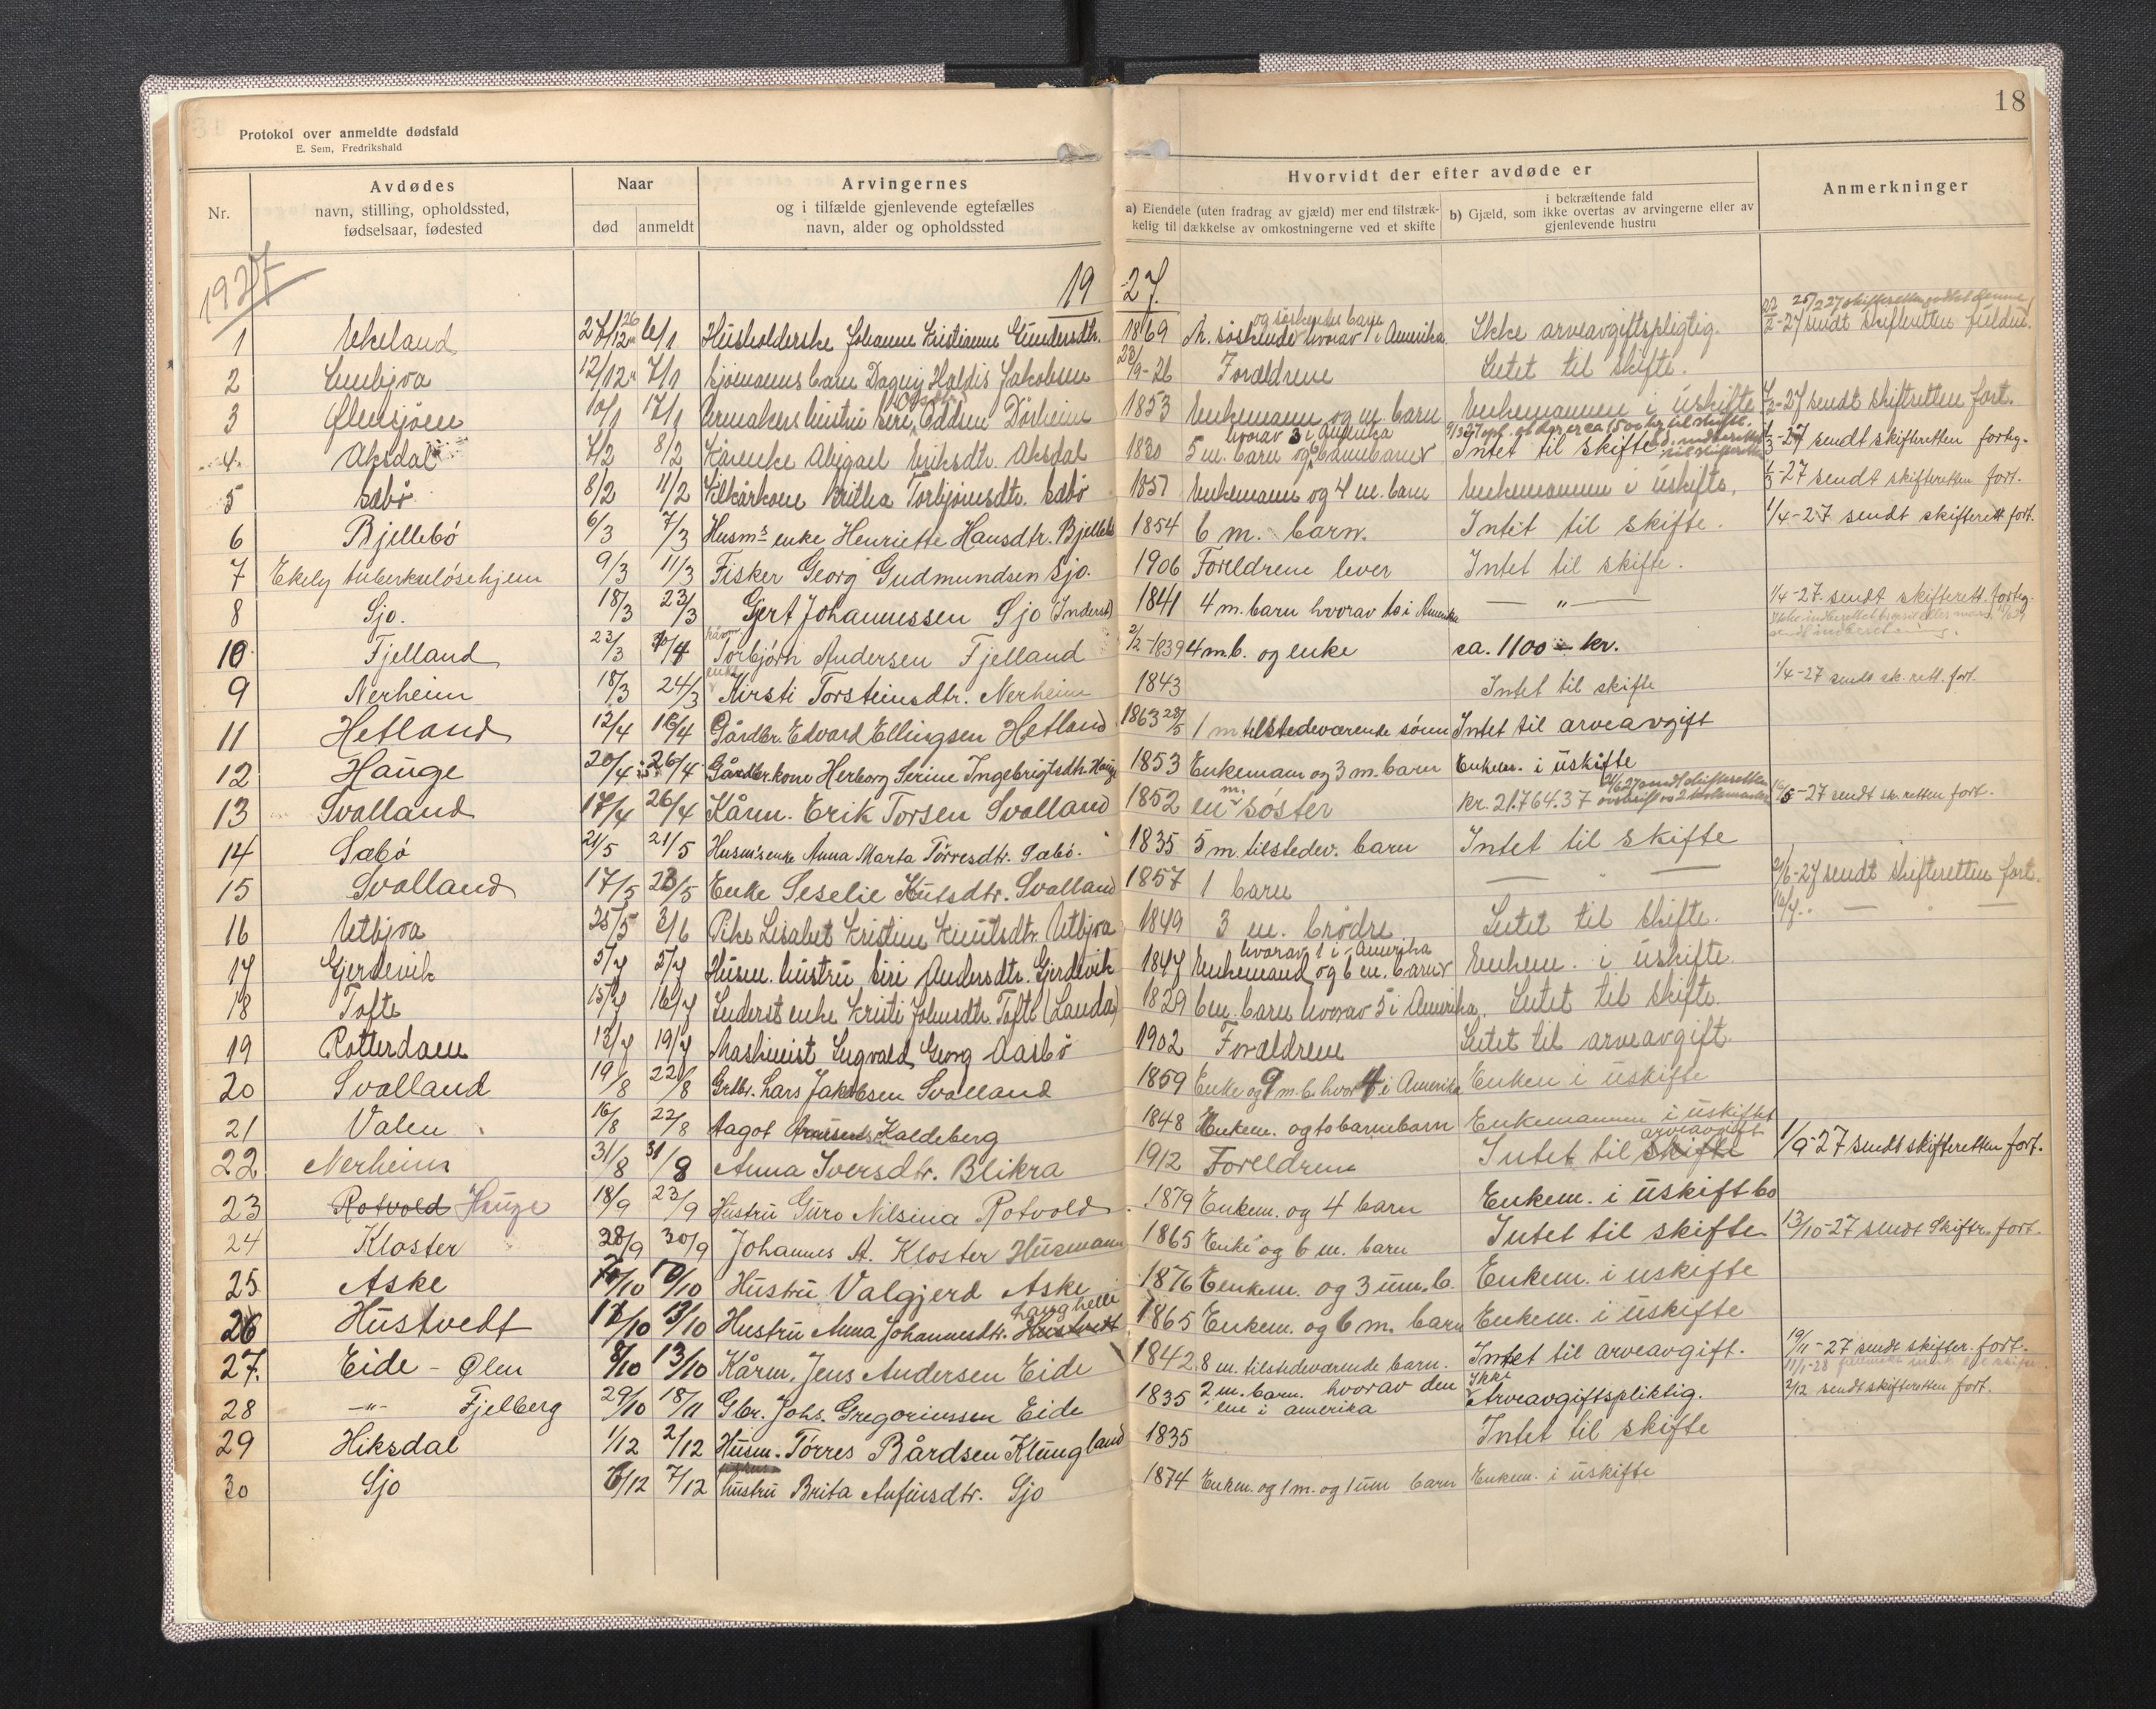 18
Protokol over anmeldte dødsfald
E. Sem, Fredrikshald
Nr.
Avdødes
navn, stilling, opholdssted,
fødselsaar, fødested
Naar
død
anmeldt
Arvingernes
og i tilfælde gjenlevende egtefælles
navn, alder og opholdssted
Hvorvidt der efter avdøde er
a) Eiendele (uten fradrag av gjæld) mer end tilstræk-
kelig til dækkelse av omkostningerne ved et skifte
i bekræftende fald
b) Gjæld, som ikke overtas av arvingerne eller av
gjenlevende hustru
Anmerkninger
1927
19 27.
1 Ekeland 27/12 26 6/1 Husholderske Johanne Kristianne Gundersdtr. 1869 m. søskende og søskendes barn hvorav 1 i Amerika Ikke arveavgiftspligtig. 22/2-27 sendt skifteretten
2 12/12 7/1 Sjømanns barn Dagny Haldis Jakobsen 28/9-26 Forældrene Intet til skifte.
3 Ølensjøen 10/1 17/1 hustru Siri Oddsen Dørheim 1853 Enkemann og m. barn Enkemannen i uskifte 7/2-27 sendt skifteretten fort.
4 Aksdal 7/2 8/2 Kårenke Abigael Eriksdtr. Aksdal 1830 5 m. barn hvorav 3 i Amerika og barnebarn Intet til skifte 1/3-27 sendt skifteretten forteg.
5 Sæbø 8/2 11/2 Kårkone Britha Torbjørnsdtr. Sæbø 1857 Enkemann og 4 m. barn Enkemannen i uskifte. 1/3-27 sendt skifteretten fort.
6 Bjellebø 6/3 7/3 Husms enke Henriette Hansdtr. Bjellebø 1854 6 m. barn. Intet til skifte. 1/4-27 sendt skifterett fort.
7 Ekely tuberkulósehjem 9/3 11/3 Fisker Georg Gudmundsen Sjo. 1906 Foreldrene lever Intet til skifte.
8 Sjo. 18/3 23/3 Gjert Johannessen Sjo (Inderst) 1841 4 m. barn hvorav to i Amerika — " — 1/4-27. sendt skifterett. forteg.
10 Fjelland 23/3 30/4 kårm. Torbjørn Andersen Fjelland 2/2-1839 4 m.b. og enke ca. 1100 kr.
9 Nerheim 18/3 24/3 enke Kirsti Torsteinsdtr. Nerheim 1843 Intet til skifte 1/4-27 sendt sk.rett. fort.
11 Hetland 12/4 16/4 Gårdbr. Edvard Ellingsen Hetland 1863 28/5 1 m tilstedeværende sønn Intet til arveavgift
12 Hauge 20/4 26/4 Gårdbr.kone Herborg Serine Ingebrigtsdtr. Hauge 1853 Enkemann og 3 m. barn Enkem. i uskifte
13 Svolland 17/4 26/4 Kårm. Erik Torsen Svolland 1852 en m. søster kr. 21.764.37 5-27 sendt sk.retten fort.
14 Sæbó 21/5 21/5 Husm's enke Anna Marta Tórresdtr. Sæbó. 1835 5 m. tilstedev. barn Intet til skifte
15 Svolland 17/5 23/5 Enke Seselie Knutsdtr. Svolland 1857 1 barn — " — 21/6-27 sendt skifteretten fort.
16 Utbjoa 25/5 3/6 Pike Lisabet Kristine Knutsdtr. Utbjoa 1849 3 m. brødre Intet til skifte. 16/7 " — " —
17 Gjerdevik 5/7 5/7 Husm. hustru Siri Andersdtr. Gjerdevik 1847 Enkemand og 6 m. barn hvorav 1 i Amerika Enkem. i uskifte.
18 Tofte 15/7 16/7 Inderst enke Kristi Johnsdtr. Tofte (Landa) 1829 6 m. barn hvorav 5 i Amerika. Intet til skifte.
19 Rotterdam 13/7 19/7 Maskinist Ingvald Georg Aasbø 1902 Forældrene Intet til arveavgift.
20 Svolland 19/8 22/8 Grdbr. Lars Jakobsen Svolland 1859 Enke og 9 m.b. hvor 4 i Amerika Enken i uskifte
21 Valen 16/8 22/8 Aagot Kaldeberg 1848 Enkem. og to barnebarn Enkemannen i uskiftet
22 Nerheim 31/8 31/8 Anna Iversdtr. Blikra 1912 Foreldrene Intet til skifte arveavgift 1/9-27 sendt skifteretten fort.
23 Rotvold Hauge 18/9 23/9 Hustru Guro Nilsina Rotvold 1879 Enkem. og 4 barn Enkem. i uskift bo
24 Kloster 28/9 30/9 Johannes A. Kloster Husmann 1865 Enke og 6 m. barn Intet til skifte 13/10-27 sendt Skiftr. fort.
25 Aske 10/10 Hustru Valgjerd Aske 1876 Enkem. og 3 um. b. Enkem. i uskifte
26 Hustvedt 12/10 13/10 Hustru Anna Johannesdtr. Hustvedt 1865 Enkem. og 6 m. barn Enkem. i uskifte
27. Eide - Ølen 8/10 13/10 Kårm. Jens Andersen Eide 1842 8 m. tilstedeværende barn. Intet til arveavgift. 19/11-27 sendt skifter. fort.
28 —"— Fjelberg 29/10 18/11 Gbr. Johs. Gregoriussen Eide 1835 2 m. barn. hvorav den ene i amerika Ikke Arveavgiftspliktig. 2/12 sendt skifteretten fort.
29 Hiksdal 1/12 2/12 Husm. Tórres Bårdsen Klungland 1835 Intet til skifte
30 Sjo 6/12 7/12 hustru Brita Anfinsdtr. Sjo 1874 Enkem. og 1 m. og 1 um barn Enkem. i uskifte